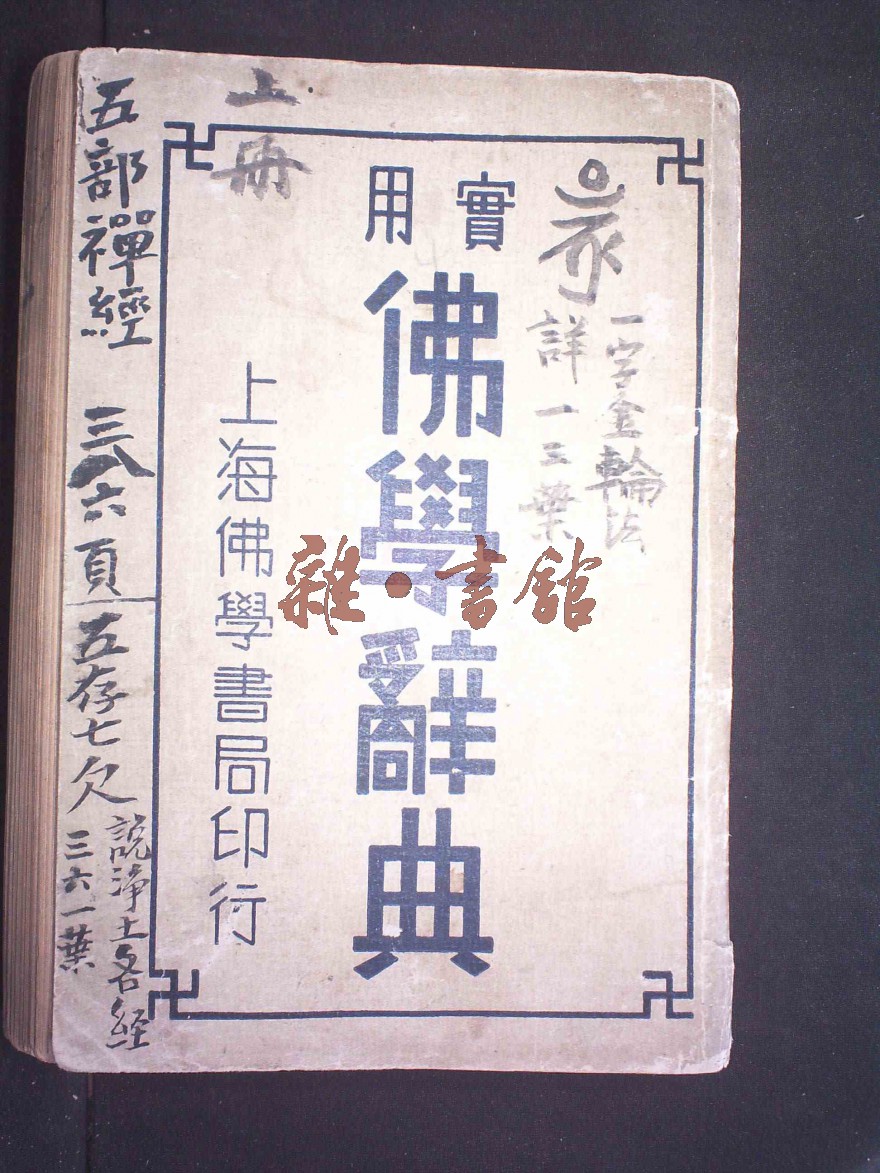 一字金輪法
詳一三葉
實用
佛學辭典
上海佛學書局印行
上冊
五部禪經 三八六頁
五存七欠
說淨土各經
三六一葉
雜·書館